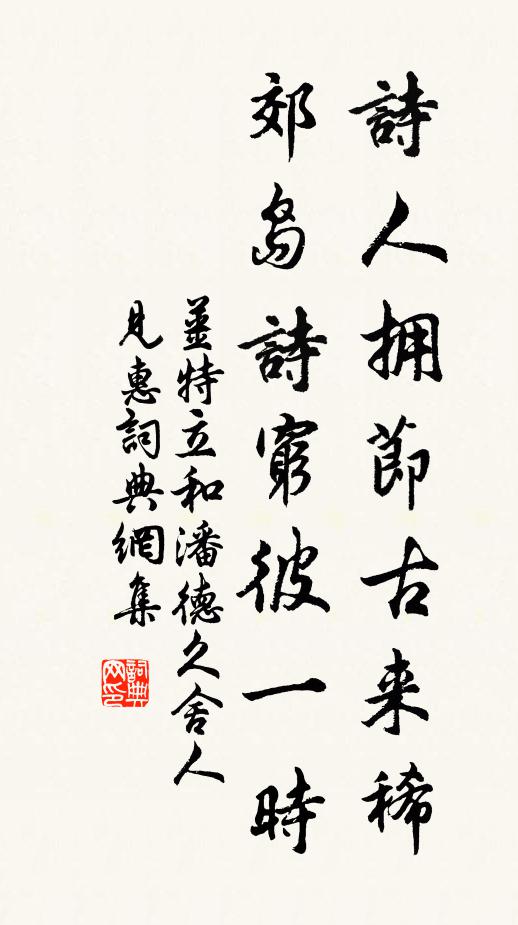 詩人拥節古来稀
郊島詩窮彼一時
薑特立和潘德久舍人
見惠詞典網集
詞典网印